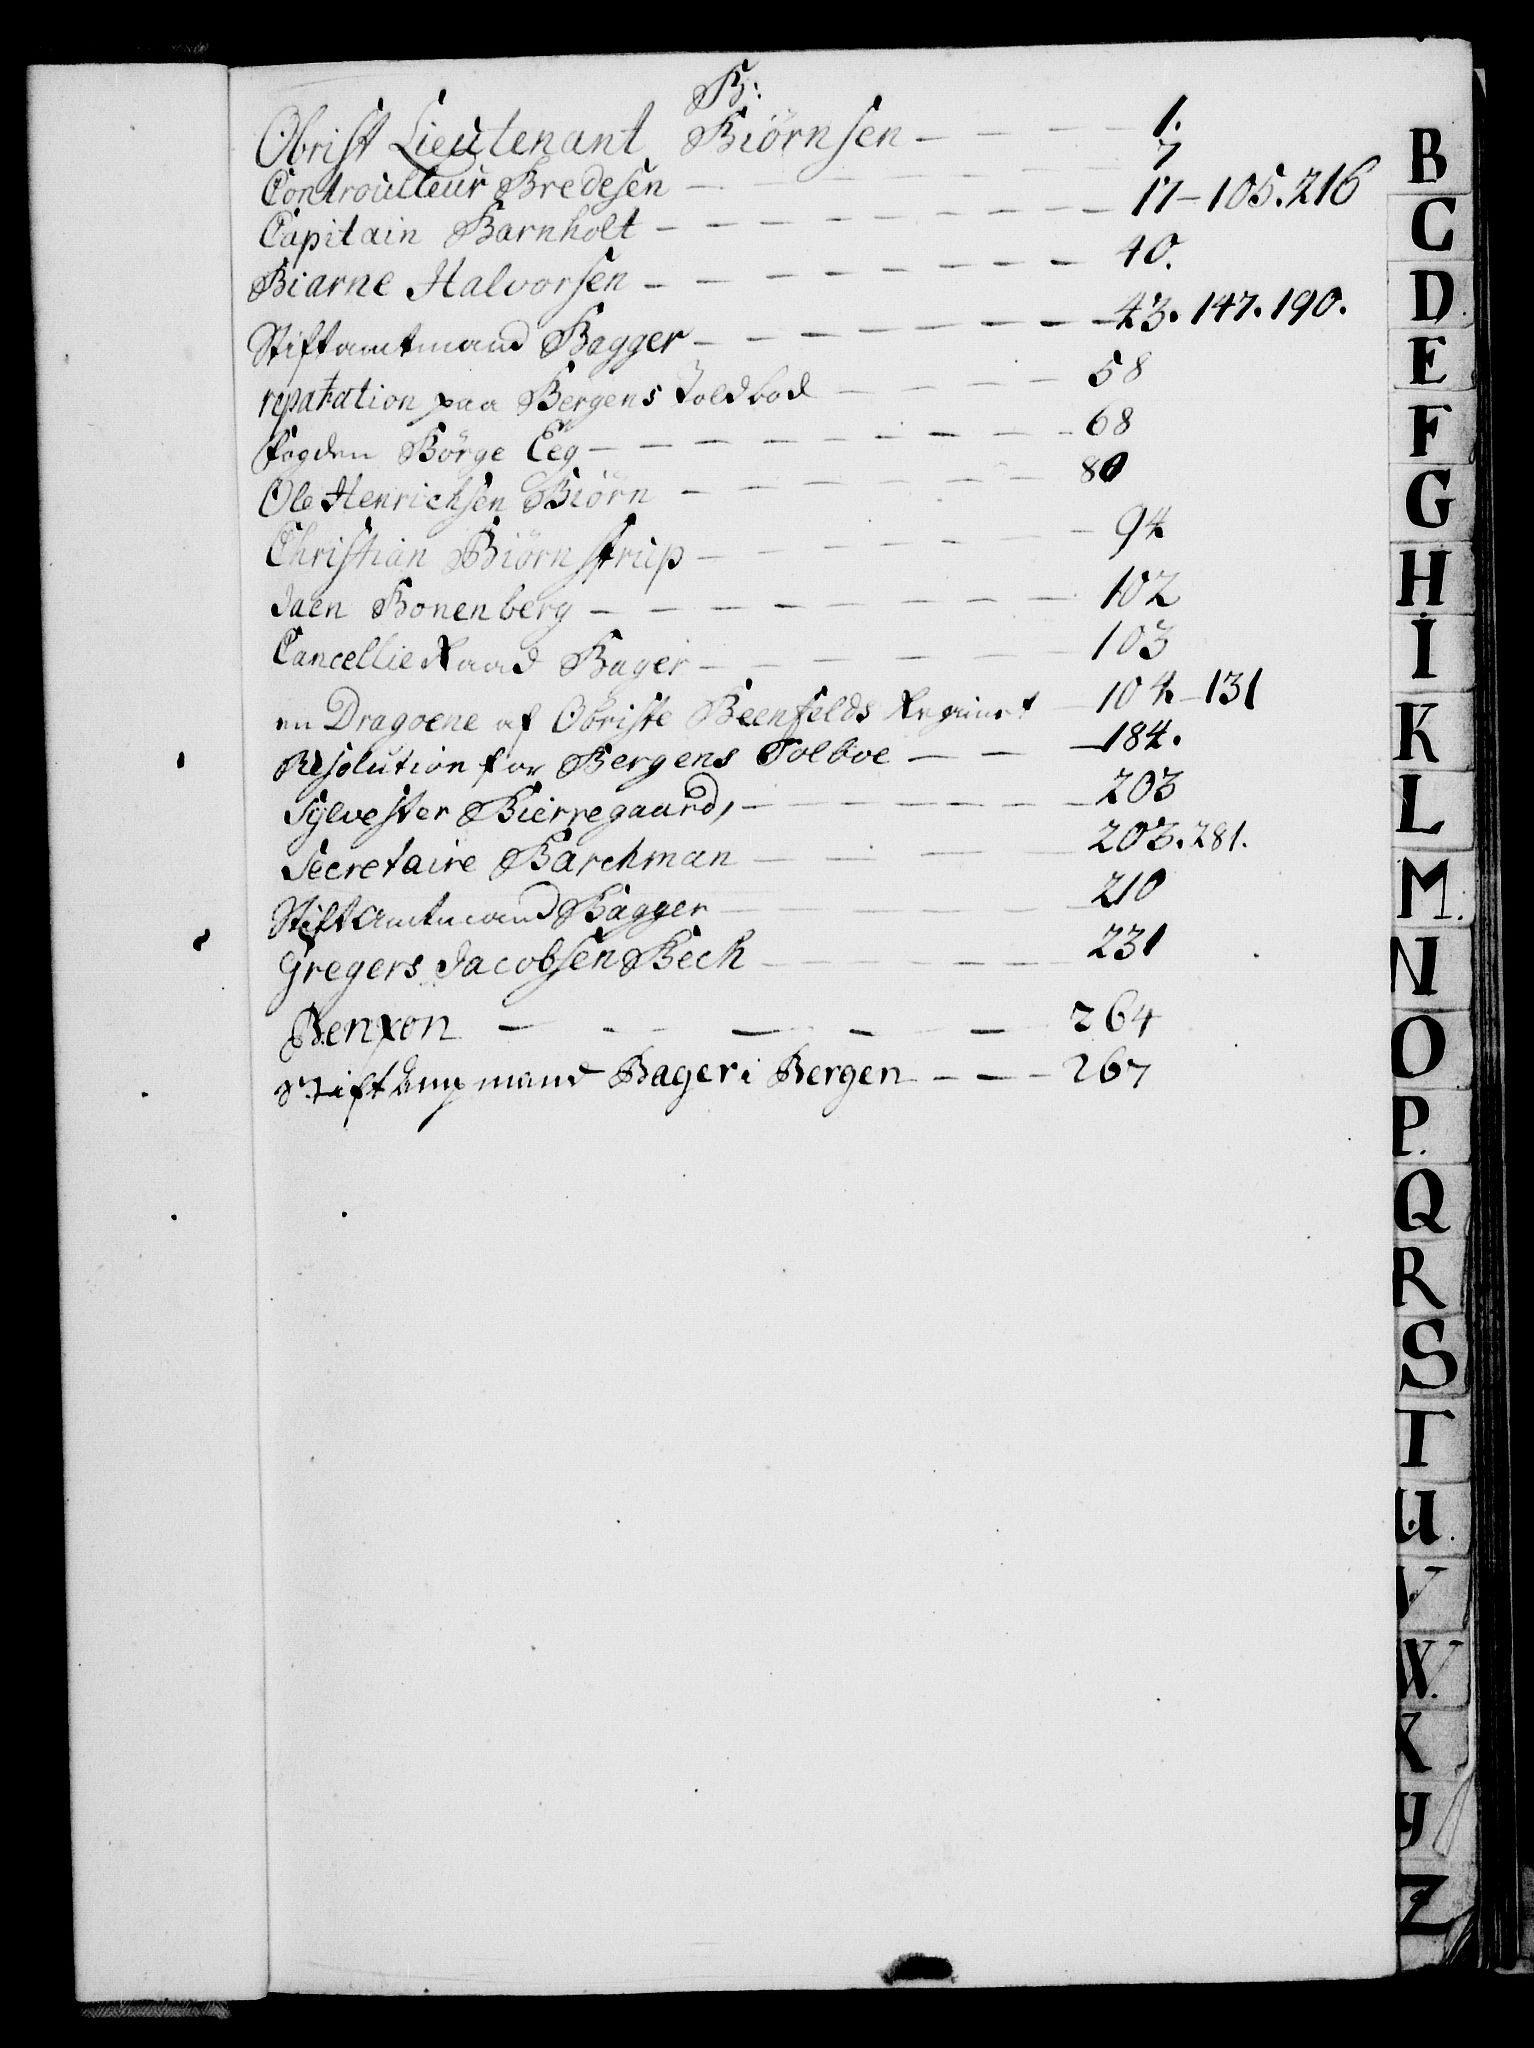 B:
Obrist Lieutenant Biörnsen — — — 1.
Controulleur Bredesen — — — 7
Capitain Barnholt — — — 17 - 105. 216
Biarne Halvorsen — — — 40.
Stiftamtmand Bagger — — — 43. 147. 190.
reparation paa Bergens Toldbod — — — 58
fogden Börge Eeg — — — 68
Ole Henrichsen Biörn — — — 80
Christian Biörnstrup — — — 94
Jaen Bonenberg — — — 102
Cancellie Raad Bager — — — 103
en Dragoene af Obriste Beenfelds Regiment — 104 - 131
Resolution for Bergens Tolboe — — — 184.
Sylvester Bierregaard, — — — 203
Secretaire Barchman — — — 203. 281.
Stift Amtmand Bagger — — — 210
Gregers Jacobsen Bech — — — 231
Benxon — — — 264
Stift Ampmand Bager i Bergen — — — 267
B
C
D.
E
F
G
H
I
K
L
M.
N
O
P.
Q
R
S
T
U.
V
W.
X
Y
Z